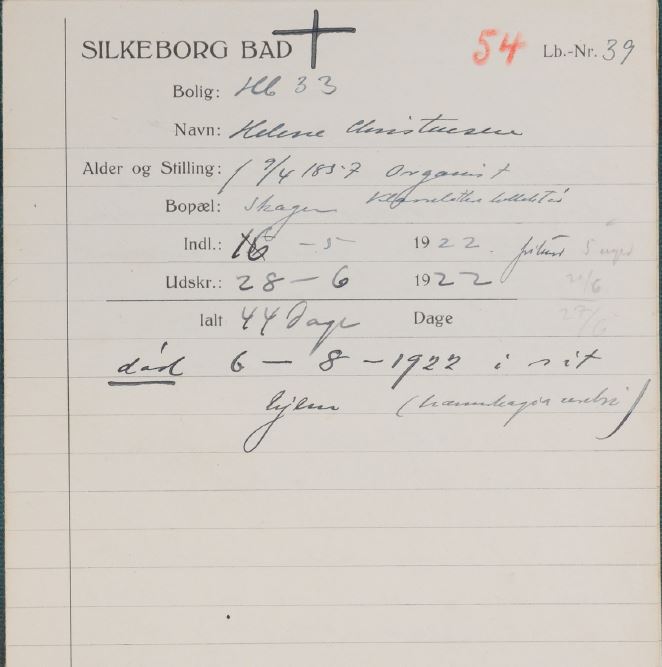 SILKEBORG BAD 54 Lb.-Nr. 39
Bolig: Hb 33
Navn: Helene Christensen
Alder og Stilling: 9/4 1857 Organist
Bopæl: Skagen
Indl.: 16 - 5 1922. 5 uger
Udskr.: 28 - 6 1922 21/6
Ialt 44 Dage Dage 27/6
død 6 - 8 - 1922 i sit
hjem (hæmorrhagia cerebri)